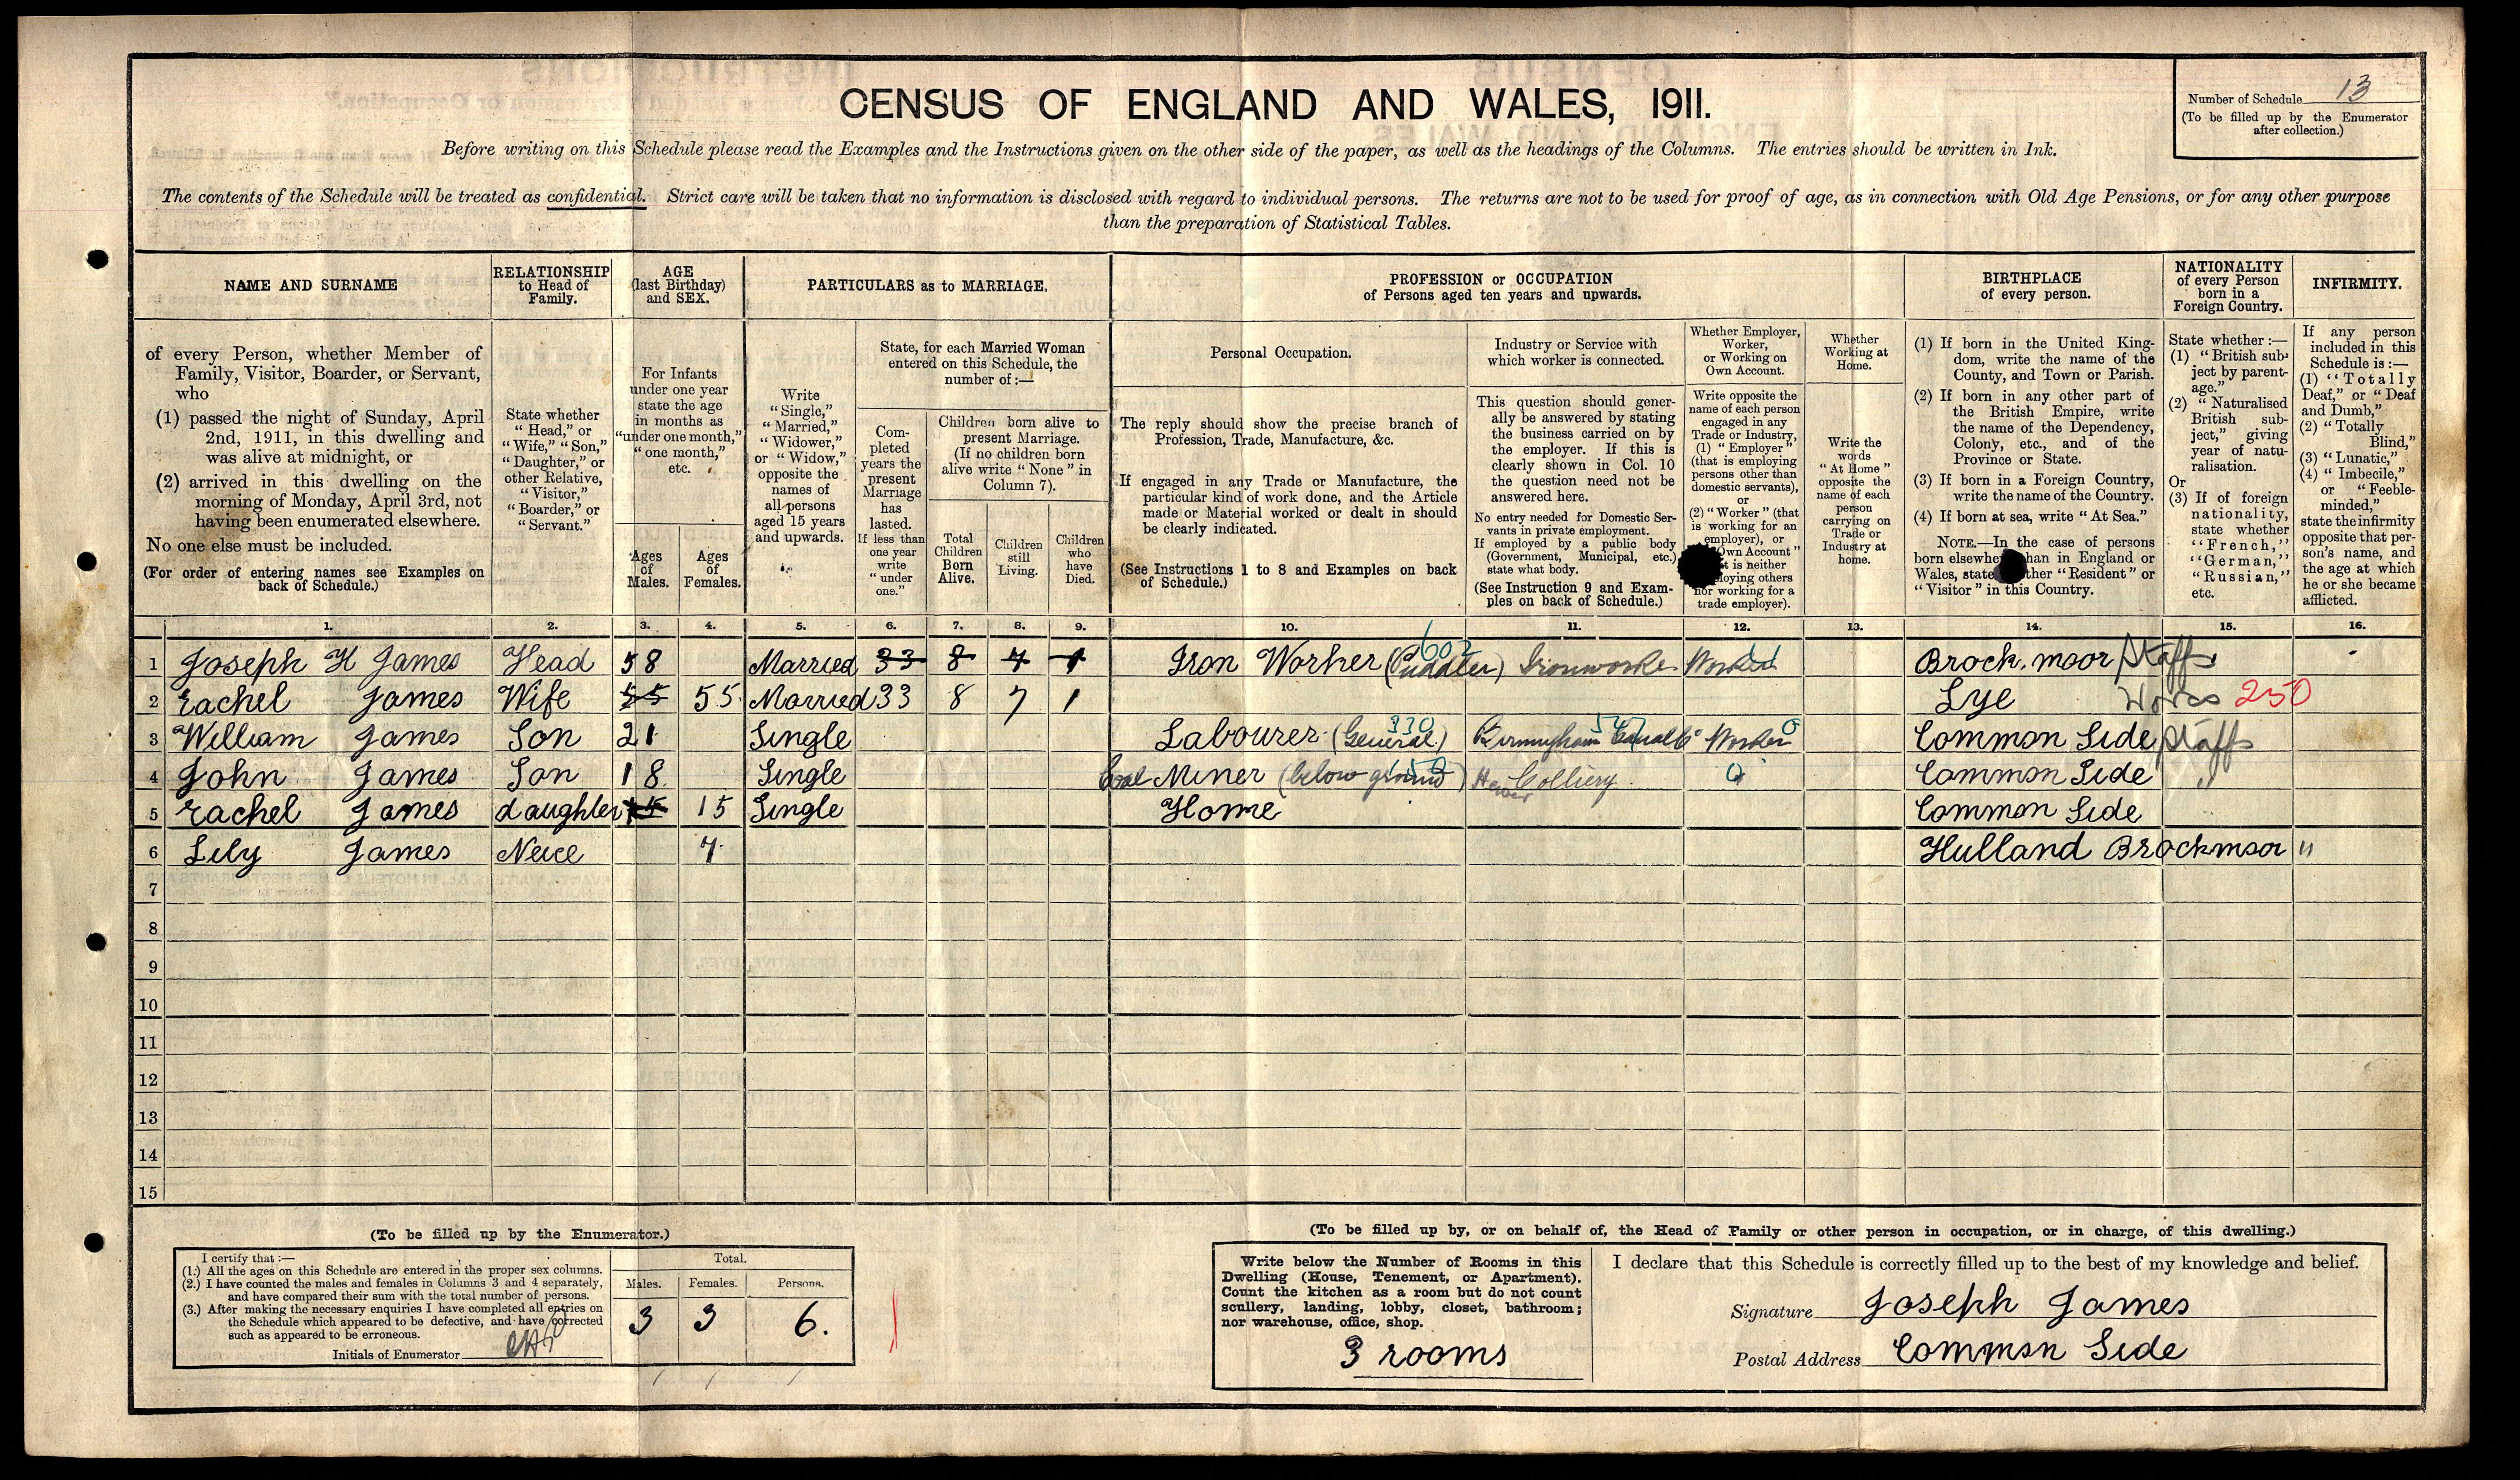 CENSUS OF ENGLAND AND WALES, 1911.
Number of Schedule 13
(To be filled up by the Enumerator
after collection.)
Before writing on this Schedule please read the Examples and the Instructions given on the other side of the paper, as well as the headings of the Columns. The entries should be written in Ink.
The contents of the Schedule will be treated as confidential. Strict care will be taken that no information is disclosed with regard to individual persons. The returns are not to be used for proof of age, as in connection with Old Age Pensions, or for any other purpose
than the preparation of Statistical Tables.
NAME AND SURNAME
of every Person, whether Member of
Family, Visitor, Boarder, or Servant,
who
(1) passed the night of Sunday, April
2nd, 1911, in this dwelling and
was alive at midnight, or
(2) arrived in this dwelling on the
morning of Monday, April 3rd, not
having been enumerated elsewhere.
No one else must be included.
(For order of entering names see Examples on
back of Schedule.)
RELATIONSHIP
to Head of
Family.
State whether
"Head," or
"Wife," "Son,"
"Daughter," or
other Relative,
"Visitor,"
"Boarder," or
"Servant."
AGE
(last Birthday)
and SEX.
For Infants
under one year
state the age
in months as
"under one month,"
"one month,"
etc.
Ages
of
Males.
Ages
of
Females.
PARTICULARS as to MARRIAGE.
Write
"Single,"
"Married,"
"Widower,"
or "Widow,"
opposite the
names of
all persons
aged 15 years
and upwards.
State, for each Married Woman
entered on this Schedule, the
number of:—
Com-
pleted
years the
present
Marriage
has
lasted.
If less than
one year
write
"under
one."
Children born alive to
present Marriage.
(If no children born
alive write "None" in
Column 7).
Total
Children
Born
Alive.
Children
still
Living.
Children
who
have
Died.
PROFESSION or OCCUPATION
of Persons aged ten years and upwards.
Personal Occupation.
The reply should show the precise branch of
Profession, Trade, Manufacture, &c.
If engaged in any Trade or Manufacture, the
particular kind of work done, and the Article
made or Material worked or dealt in should
be clearly indicated.
(See Instructions 1 to 8 and Examples on back
of Schedule.)
Industry or Service with
which worker is connected.
This question should gener-
ally be answered by stating
the business carried on by
the employer. If this is
clearly shown in Col. 10
the question need not be
answered here.
No entry needed for Domestic Ser-
vants in private employment.
If employed by a public body
(Government, Municipal, etc.)
state what body.
(See Instruction 9 and Exam-
ples on back of Schedule.)
Whether Employer,
Worker,
or Working on
Own Account.
Write opposite the
name of each person
engaged in any
Trade or Industry,
(1) "Employer"
(that is employing
persons other than
domestic servants),
or
(2) "Worker" (that
is working for an
employer), or
Own Account"
is neither
loying others
nor working for a
trade employer).
Whether
Working at
Home.
Write the
words
"At Home"
opposite the
name of each
person
carrying on
Trade or
Industry at
home.
BIRTHPLACE
of every person.
(1) If born in the United King-
dom, write the name of the
County, and Town or Parish.
(2) If born in any other part of
the British Empire, write
the name of the Dependency,
Colony, etc., and of the
Province or State.
(3) If born in a Foreign Country,
write the name of the Country.
(4) If born at sea, write "At Sea."
NOTE.—In the case of persons
born elsewhe han in England or
Wales, state ther "Resident" or
"Visitor" in this Country.
NATIONALITY
of every Person
born in a
Foreign Country.
State whether:—
(1) "British sub-
ject by parent-
age."
(2) "Naturalised
British sub-
ject," giving
year of natu-
ralisation.
Or
(3) If of foreign
nationality,
state whether
"French,"
"German,"
"Russian,"
etc.
INFIRMITY.
If any person
included in this
Schedule is:—
(1) "Totally
Deaf," or "Deaf
and Dumb,"
(2) "Totally
Blind,"
(3) "Lunatic,"
(4) "Imbecile,"
or "Feeble-
minded,"
state the infirmity
opposite that per-
son's name, and
the age at which
he or she became
afflicted.
1. 2. 3. 4. 5. 6. 7. 8. 9. 10. 11. 12. 13. 14. 15. 16.
1 Joseph H James Head 58 Married 33 8 7 1 Iron Worker (Puddler) 602 Ironworks Worker Brock.moor Staffs
2 Rachel James Wife 55 55 Married 33 8 7 1 Lye Worcs 250
3 William James Son 21 Single Labourer (General) 930 Birmingham Canal Co Worker 0 Common Side Staffs
4 John James Son 18 Single Coal Miner (below ground) Hewer Colliery 0 Common Side "
5 Rachel James daughter 15 15 Single Home Common Side
6 Lily James Neice 7 Hulland Brockmoor "
7
8
9
10
11
12
13
14
15
(To be filled up by the Enumerator.)
I certify that:—
(1.) All the ages on this Schedule are entered in the proper sex columns.
(2.) I have counted the males and females in Columns 3 and 4 separately,
and have compared their sum with the total number of persons.
(3.) After making the necessary enquiries I have completed all entries on
the Schedule which appeared to be defective, and have corrected
such as appeared to be erroneous.
Initials of Enumerator
Total.
Males. Females. Persons.
3 3 6.
(To be filled up by, or on behalf of, the Head of Family or other person in occupation, or in charge, of this dwelling.)
Write below the Number of Rooms in this
Dwelling (House, Tenement, or Apartment).
Count the kitchen as a room but do not count
scullery, landing, lobby, closet, bathroom;
nor warehouse, office, shop.
3 rooms
I declare that this Schedule is correctly filled up to the best of my knowledge and belief.
Signature Joseph James
Postal Address Common Side